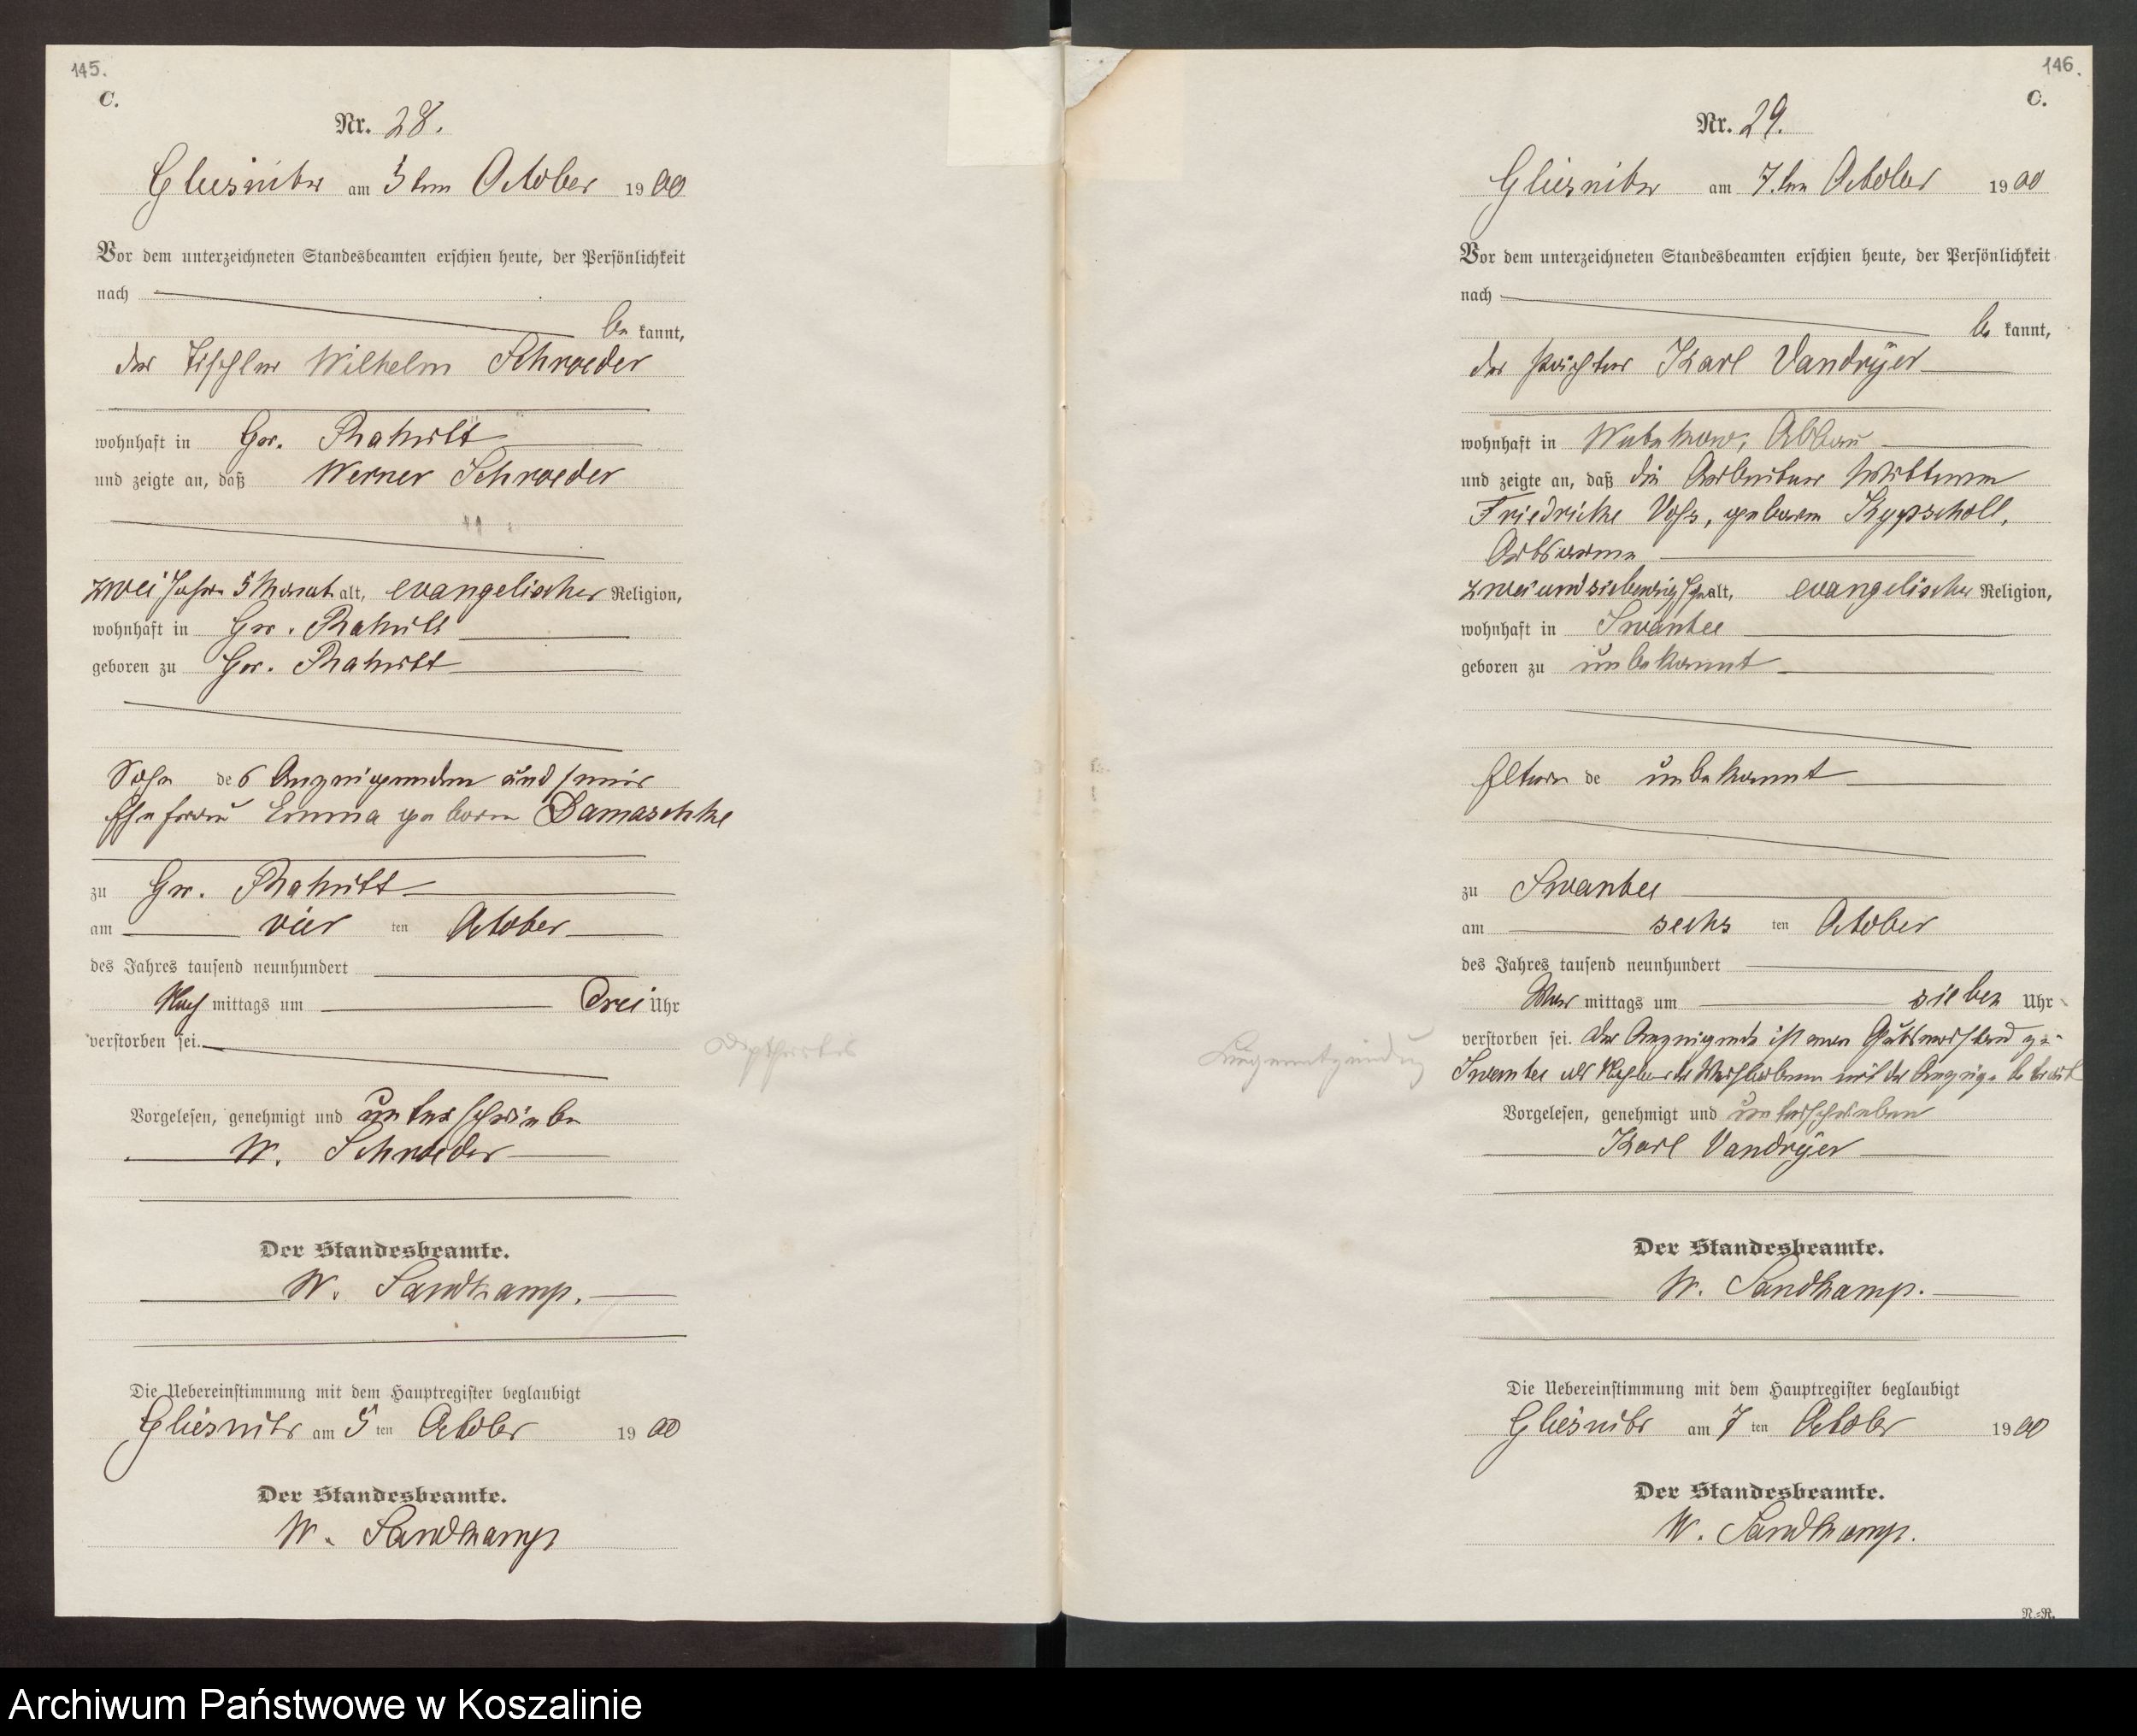 145.
C.
Nr. 28.
Gliesnitz am 5ten October 1900
Vor dem unterzeichneten Standesbeamten erschien heute, der Persönlichkeit
nach
be kannt,
der Tischler Wilhelm Schroeder
wohnhaft in Gr. Rakitt
und zeigte an, daß Werner Schroeder
zwei Jahre 5 Monat alt, evangelischer Religion,
wohnhaft in Gr. Rakitt
geboren zu Gr. Rakitt
Sohn des Anzeigenden und seiner
Ehefrau Emma geborene Damaschke
zu Gr. Rakitt
am vier ten October
des Jahres tausend neunhundert
Nach mittags um drei Uhr
verstorben sei.
Diphtheritis
Vorgelesen, genehmigt und unterschrieben
W. Schroeder
Der Standesbeamte.
W. Sandkamp.
Die Uebereinstimmung mit dem Hauptregister beglaubigt
Gliesnitz am 5 ten October 1900
Der Standesbeamte.
W. Sandkamp
146.
C.
Nr. 29.
Gliesnitz am 7.ten October 1900
Vor dem unterzeichneten Standesbeamten erschien heute, der Persönlichkeit
nach
be kannt,
der Pächter Karl Vandrÿer
wohnhaft in Abbau
und zeigte an, daß die Arbeiter Wittwe
Friedricke Voss, geborene Kypscholl,
Ortsarme
zweiundsiebenzig Jahr alt, evangelischer Religion,
wohnhaft in Swantee
geboren zu unbekannt
Eltern de unbekannt
zu Swantee
am sechs ten October
des Jahres tausend neunhundert
Vor mittags um sieben Uhr
verstorben sei. Der Anzeigende ist vom Gutsvorstand zu
Swantee als Nachbar der Verstorbenen mit der Anzeige betraut
Lungenentzündung
Vorgelesen, genehmigt und unterschrieben
Karl Vandrÿer
Der Standesbeamte.
W. Sandkamp.
Die Uebereinstimmung mit dem Hauptregister beglaubigt
Gliesnitz am 7 ten October 1900
Der Standesbeamte.
W. Sandkamp.
N.-R.
Archiwum Państwowe w Koszalinie